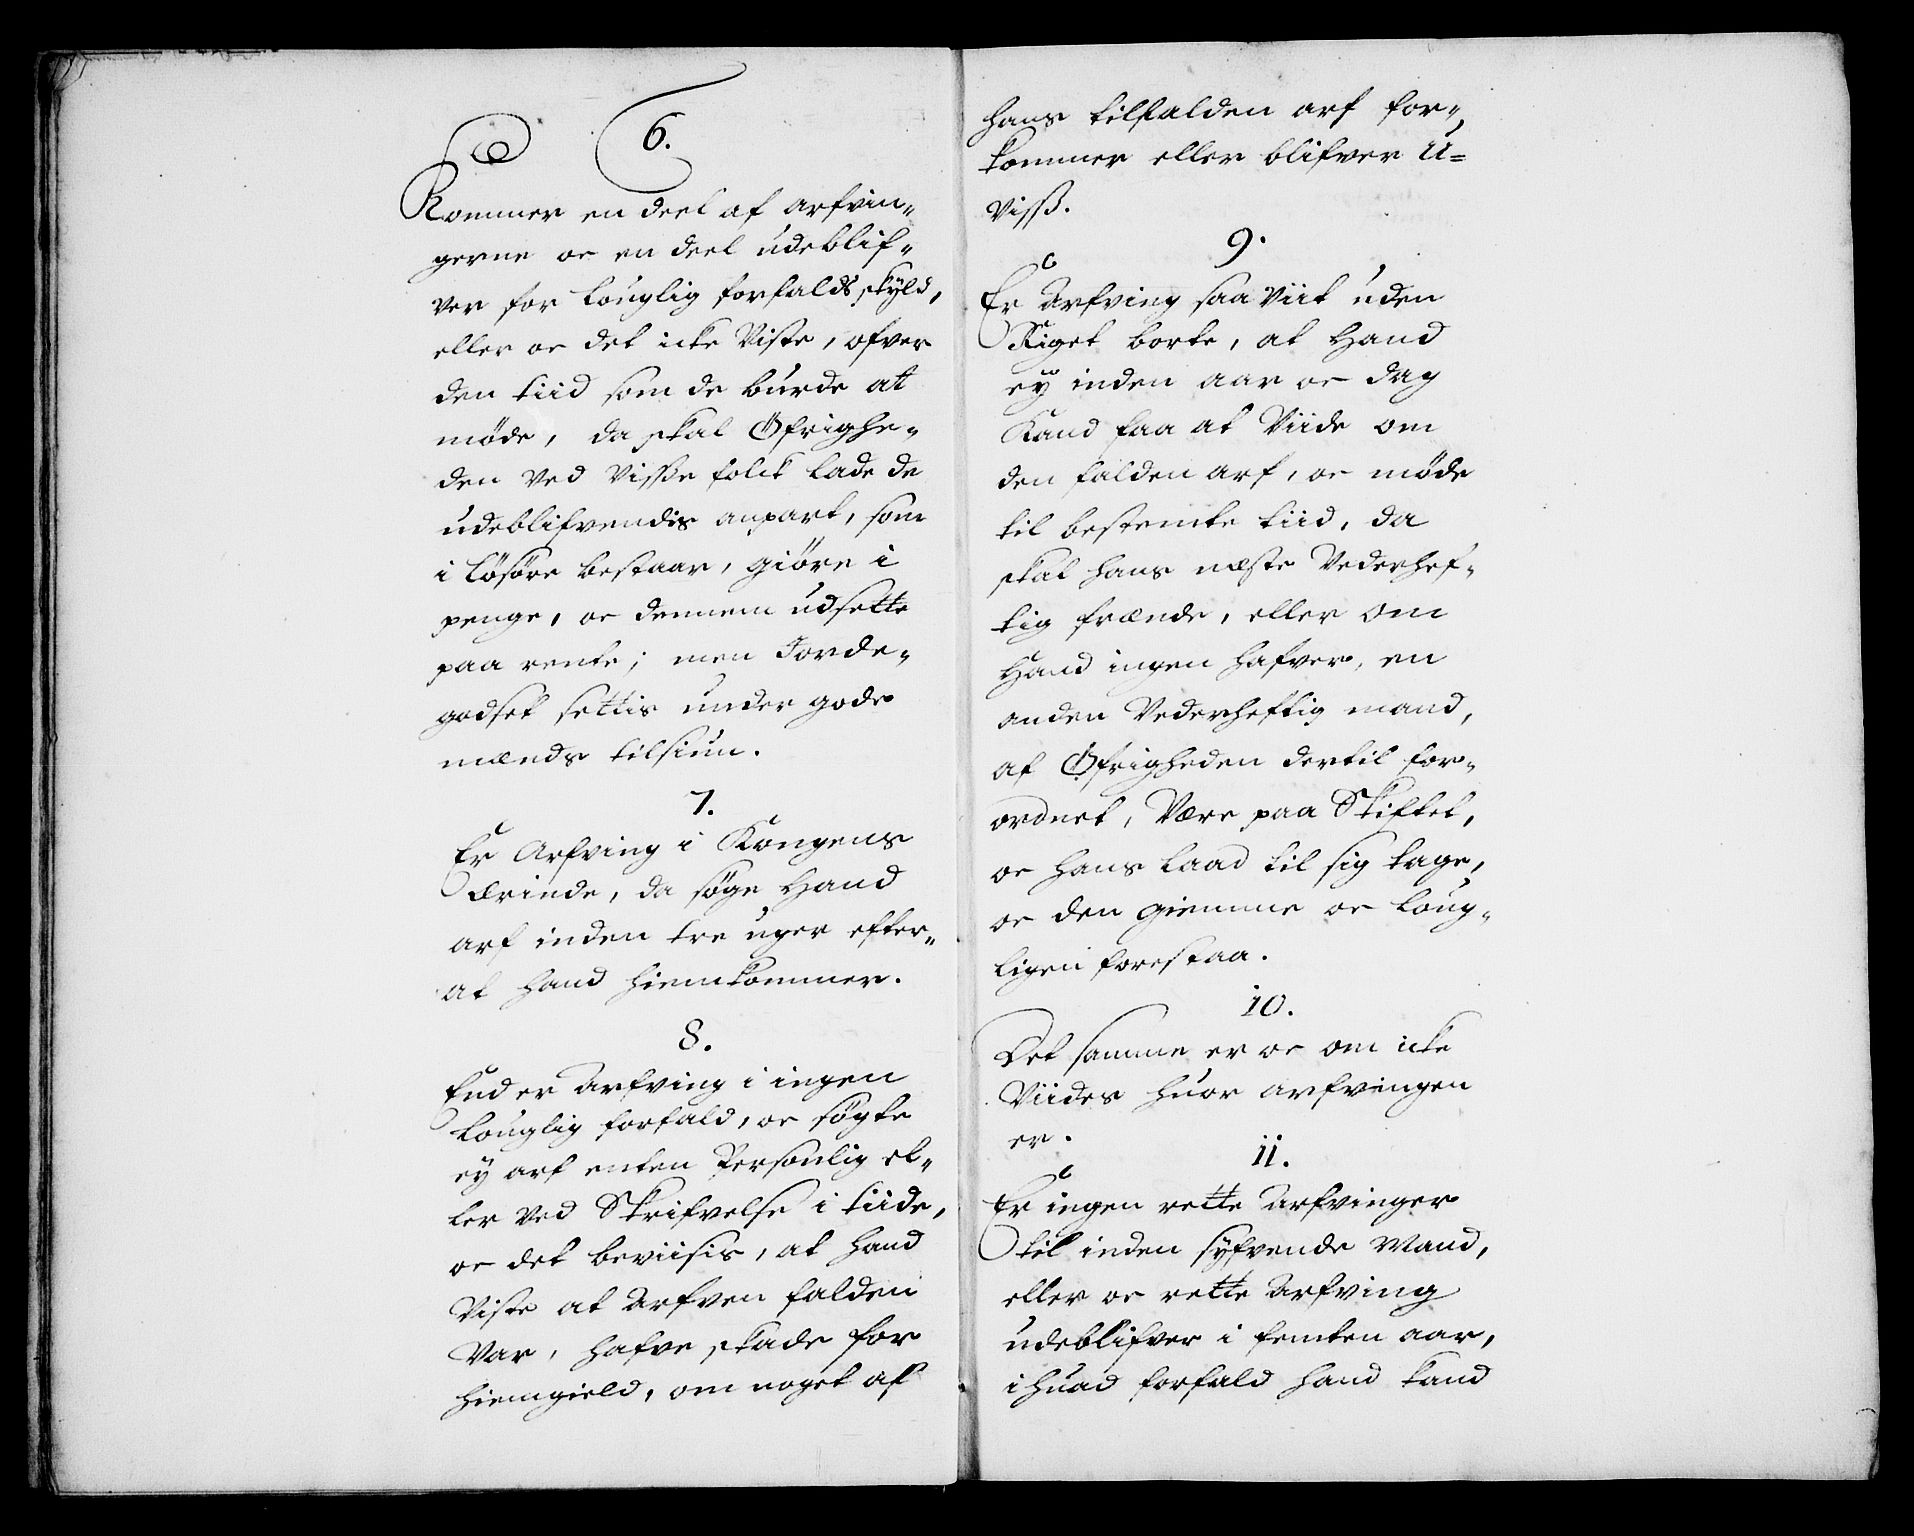 6.
Kommer en deel af arfvin„
gerne oc en deel udeblif„
ver for louglig forfalds skyld,
eller oc det icke Viste, ofver
den tiid som de burde at
møde, da skal Øfrighe„
den ved Visse folck lade de
udeblifvendis anpart, som
i løsøre bestaar, giøre i
penge, oc dennem udsette
paa rente; men Jorde„
godset settis under gode
mænds tilsiun.
7.
Er Arfving i Kongens
Ærinde, da søge Hand
arf inden tre uger efter„
at hand hiemkommer.
8.
End er Arfving i ingen
louglig forfald, oc søgte
ey arf enten Personlig el„
ler ved Skrifvelse i tiide,
oc det beviisis, at hand
Viste at Arfven falden
Var, hafve skade for
hiemgield, om noget af
hans tilfalden arf for„
kommer eller blifver U=
viss.
9.
Er Arfving saa Viit uden
Riget borte, at Hand
ey inden aar oc dag
Kand faa at Viide om
den falden arf, oc møde
til bestemte tiid, da
skal hans næste Vederhef„
tig frænde, eller om
Hand ingen hafver, en
anden Vederheftig mand,
af Øfrigheden dertil for„
ordnet, Være paa Skiftet,
oc hans laad til sig tage,
oc den giemme oc loug„
ligen forestaa.
10.
Det samme er oc om icke
Viides huor arfvingen
er.
11.
Er ingen rette Arfvinger
til inden syfvende Mand,
eller oc rette Arfving
udeblifver i femten aar,
i huad forfald hand kand